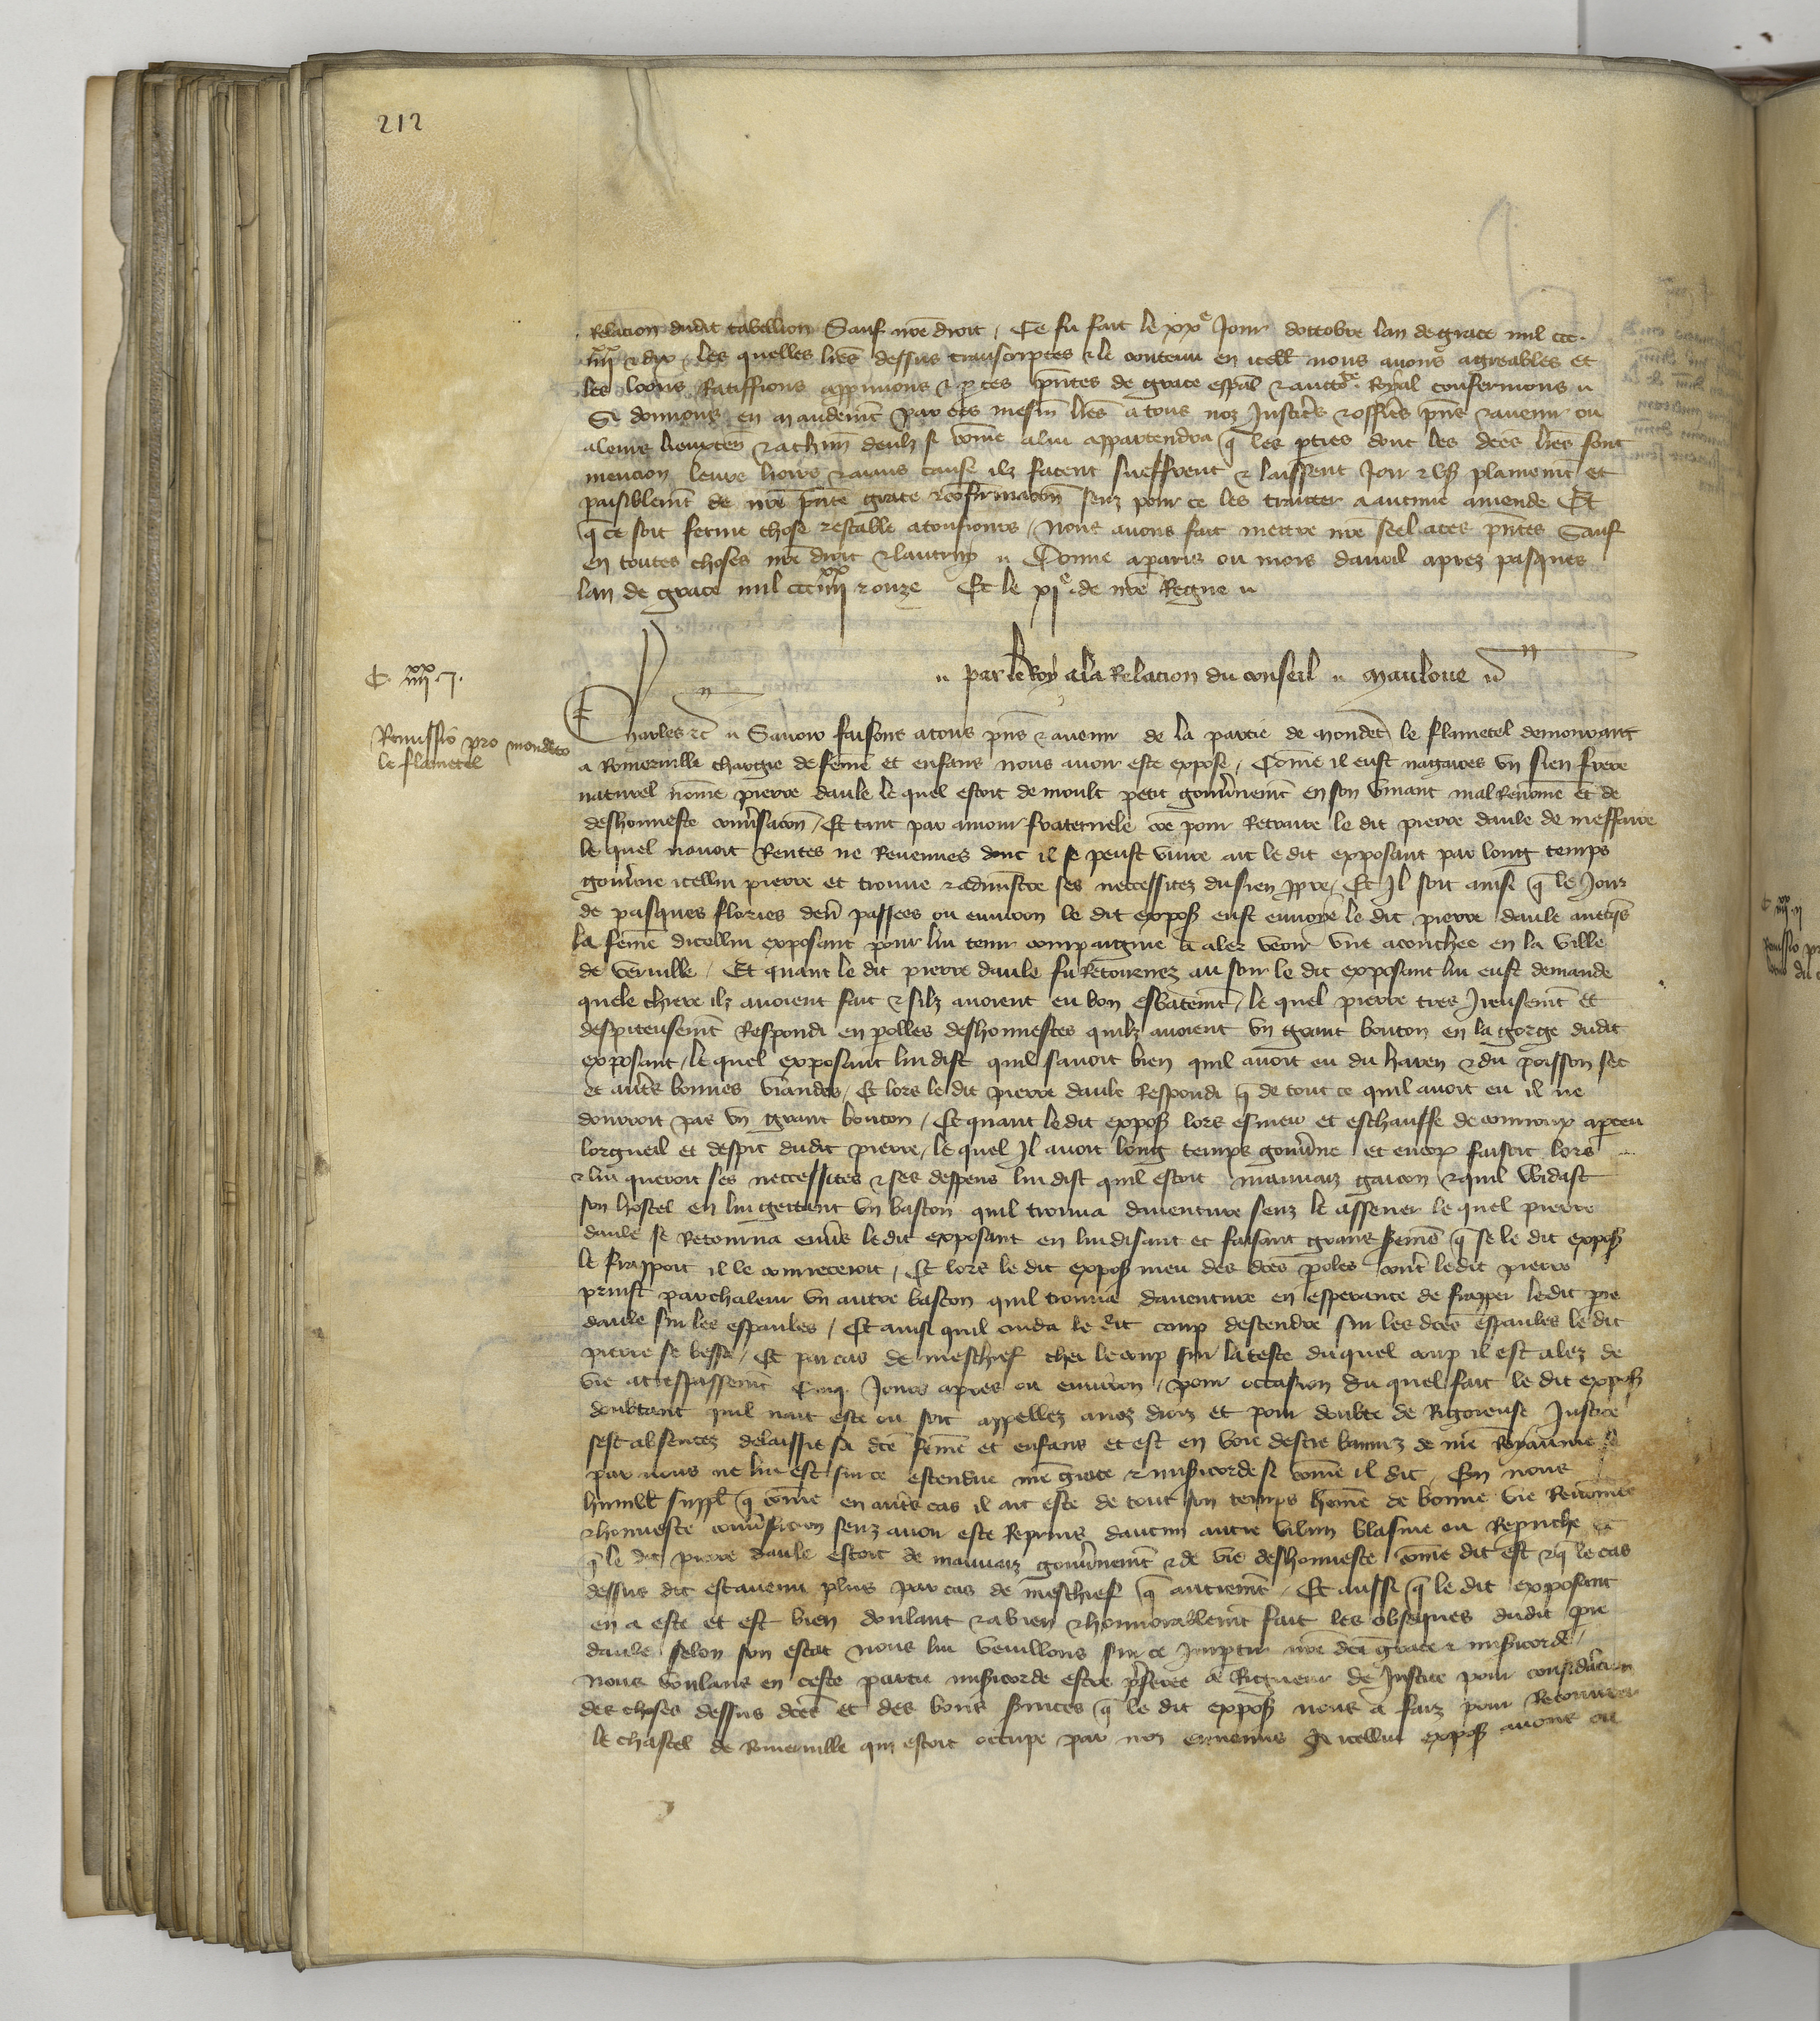 212
Relacion dudit tabellion Sauf nre droit / Ce fu fait le xxe Jour doctobre lan de grace mil ccc.
iiiixx & dix / les quelles lres dessus transcriptes & le contenu en icell nous avons agreables et
les loons Ratiffions approuvons & p ces pntes de grace espal & auctote Royal confermons
Si donnons en mandemt par ces mesm lres a tous noz Justicrs & officrs pns & avenir ou
a leurs lieuxten & a chun deulz si come a lui appartendra q les pties dont les dces lres font
mencion leurs hoirs & aians cause ilz facent sueffrent & laissent Joir & user plainemt et
paisiblemt de nre pnte grace & confirmacon senz pour ce les traitter a aucune amende Et
q ce soit ferme chose & estable a tousiours / Nous avons fait mettre nre seel a ces pntes Sauf
en toutes choses nre droit & lautruy Donne a paris ou mois davril aprez pasques
lan de grace mil ccciiiixx & onze Et le xie de nre Regne
par le Roy a la Relacion du conseil Mauloue
C. iiiixx. i.
Remissio pro mondeto
le flametel
Charles &c Savoir faisons a tous pns & avenir de la partie de Mondet le flametel demourant
a Romerville chargie de feme et enfans nous avoir este expose / Come il eust nagaires un sien frere
naturel nome pierre daule le quel estoit de moult petit gouvnemt en son vivant mal Renome et de
deshonneste conversacon / Et tant par amour fraternele come pour Retraire le dit pierre daule de meffaire
le quel navoit Rentes ne Revenues dont il se peust vivre ait le dit exposant par long temps
gouvne icellui pierre et trouve & admistre ses necessitez du sien ppre / Et Il soit ainsi q le Jour
de pasques flories dern passees ou environ le dit expos eust envoye le dit pierre daule avecqs
la feme dicellui exposant pour lui tenir compaignie a aler veoir une acouchee en la ville
de verville / Et quant le dit pierre daule fu Retournez au soir le dit exposant lui eust demande
quele chiere ilz avoient fait & silz avoient eu bon esbatemt / le quel pierre tres Ireusemt et
despiteusemt Respondi en polles deshonnestes quilz avoient un grant bouton en la gorge dudit
exposant / le quel exposant lui dist quil savoit bien quil avoit eu du haren & du poisson sec
et autrs bonnes viandes / Et lors le dit pierre daule Respondi q de tout ce quil avoit eu il ne
donroit pas un grant bouton / Et quant le dit expos lors esmeu et eschauffe de courroux aperceu
lorgueil et despit dudit pierre / le quel Il avoit long temps gouvne et encor faisoit lors
& lui queroit ses neccessites & ses despens lui dist quil estoit mauvaiz garcon & quil widast
son hostel en lui gettant un baston quil trouva daventure senz le assener le quel pierre
daule se Retourna envrs le dit exposant en lui disant et faisant grans semens q se le dit expos
le frappoit il le comreceroit / Et lors le dit expos meu des dces poles contr le dit pierre
prinst par chaleur un autre baston quil trouva daventure en esperance de frapper le dit pre
daule sur les espaules / Et ainsi quil cuida le dit coup descendre sur les dces espaules le dit
pierre se bessa / Et par cas de meschief chei le coup sur la teste duquel coup il est alez de
vie a trespassemt cinq Jours apres ou environ / pour occasion du quel fait le dit expos
doubtant quil nait este ou soit appellez a noz droiz et pour doubte de Rigoreuse Justice
sest absentez delaissie sa dce feme et enfans et est en voie destre banniz de nre Royaume se
par nous ne lui est sur ce estendue nre grace & misicorde si come il dit / En nous
humblt suppl q come en autrs cas il ait este de tout son temps home de bonne vie Renomee
& honneste convsacion senz avoir este Reprins daucun autre vilain blasme ou Reprouche et
q le dit pierre daule estoit de mauvaiz gouvnemt & de vie deshonneste come dit est & q le cas
dessus dit est avenu plus par cas de meschief q autremt / Et aussi q le dit exposant
en a este et est bien doulant & a bien & honnorablemt fait les obseques dudit pre
daule selon son estat nous lui veuillons sur ce Impartir nre dca grace & misicorde /
Nous voulans en ceste partie misicorde estre pferee a Rigueur de Justice pour consideracion
des choses dessus dces et des bons services q le dit expos nous a faiz pour Recouvrer
le chastel de Romerville qui estoit occupe par noz ennemis A icellui expos avons ou